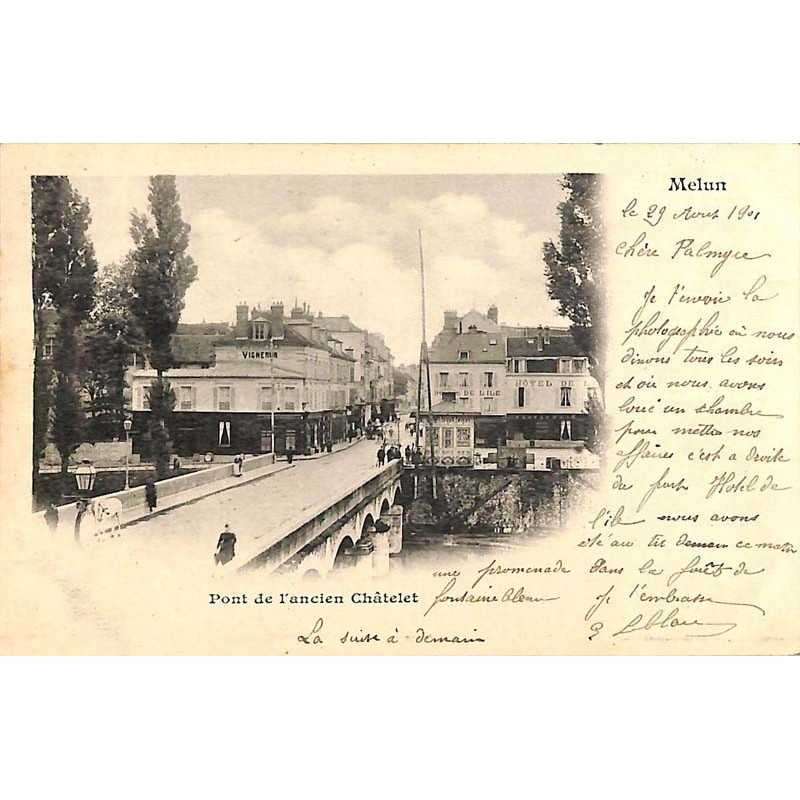 Melun
le 29 Aout 1901
Chère Palmyre
Je t'envoie la
photographie où nous
dinons tous les soirs
et où nous avons
loué un chambre
pour mettre nos
affaires c'est a droite
du pont Hotel de
l'ile nous avons
été au tir demain ce matin
une promenade dans la forêt de
fontainebleau Je t'embrasse
Leblanc
La suite à demain
Pont de l'ancien Châtelet
VIGNERON
DE L'ILE
HÔTEL DE L